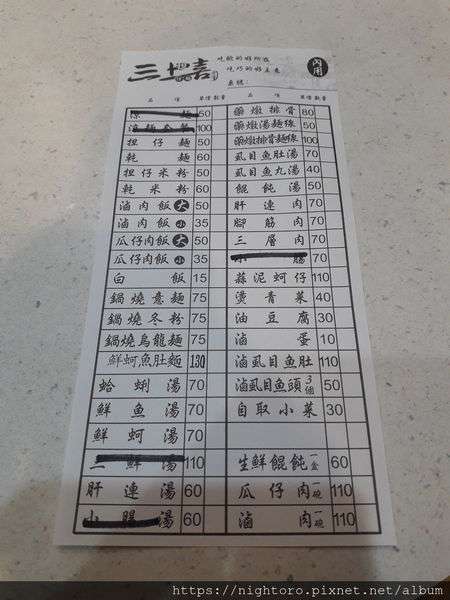 吃飽的好所在
吃巧的好主意
內用
桌號:
品 項 單價 數量
麵 50
100
担仔麵 50
乾麵 60
担仔米粉 50
乾米粉 60
滷肉飯 大 50
滷肉飯 小 35
瓜仔肉飯 大 50
瓜仔肉飯 小 35
白飯 15
鍋燒意麵 75
鍋燒冬粉 75
鍋燒烏龍麵 75
鮮蚵魚肚麵 130
蛤蜊湯 70
鮮魚湯 70
鮮蚵湯 70
三鮮湯 110
肝連湯 60
小腸湯 60
品 項 單價 數量
藥燉排骨 80
藥燉湯麵線 50
藥燉排骨麵線 100
虱目魚肚湯 70
虱目魚丸湯 40
餛飩湯 50
肝連肉 70
腳筋肉 70
三層肉 70
小腸 70
蒜泥蚵仔 110
燙青菜 40
油豆腐 30
滷蛋 10
滷虱目魚肚 110
滷虱目魚頭 3個 50
自取小菜 30
生鮮餛飩 一盒 60
瓜仔肉 一碗 110
滷肉 一碗 110
https://nightoro.pixnet.net/album